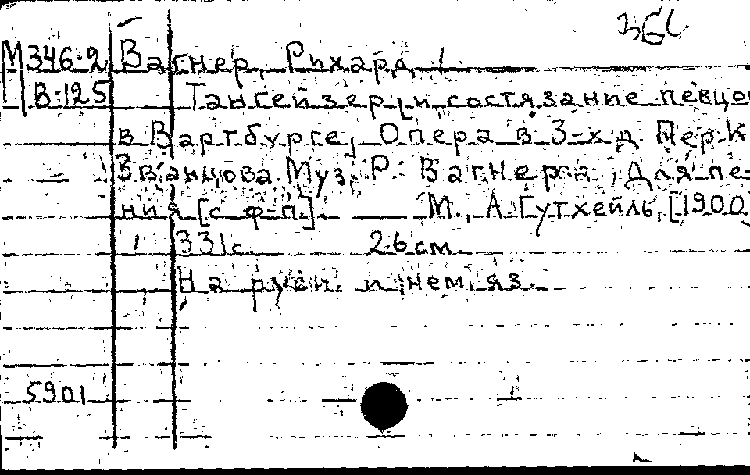 М346-2 Вагнер, Рихард /
В-125 Тангейзер [и состязание певцо
в Вартбурге]. Опера в 3-х д. Пер. К.
Званцова. Муз. Р. Вагнера. Для пе-
ния [с ф-п.]. М., А. Гутхейль, [1900
331 с. 26 см.
На русск. и нем. яз.
5901